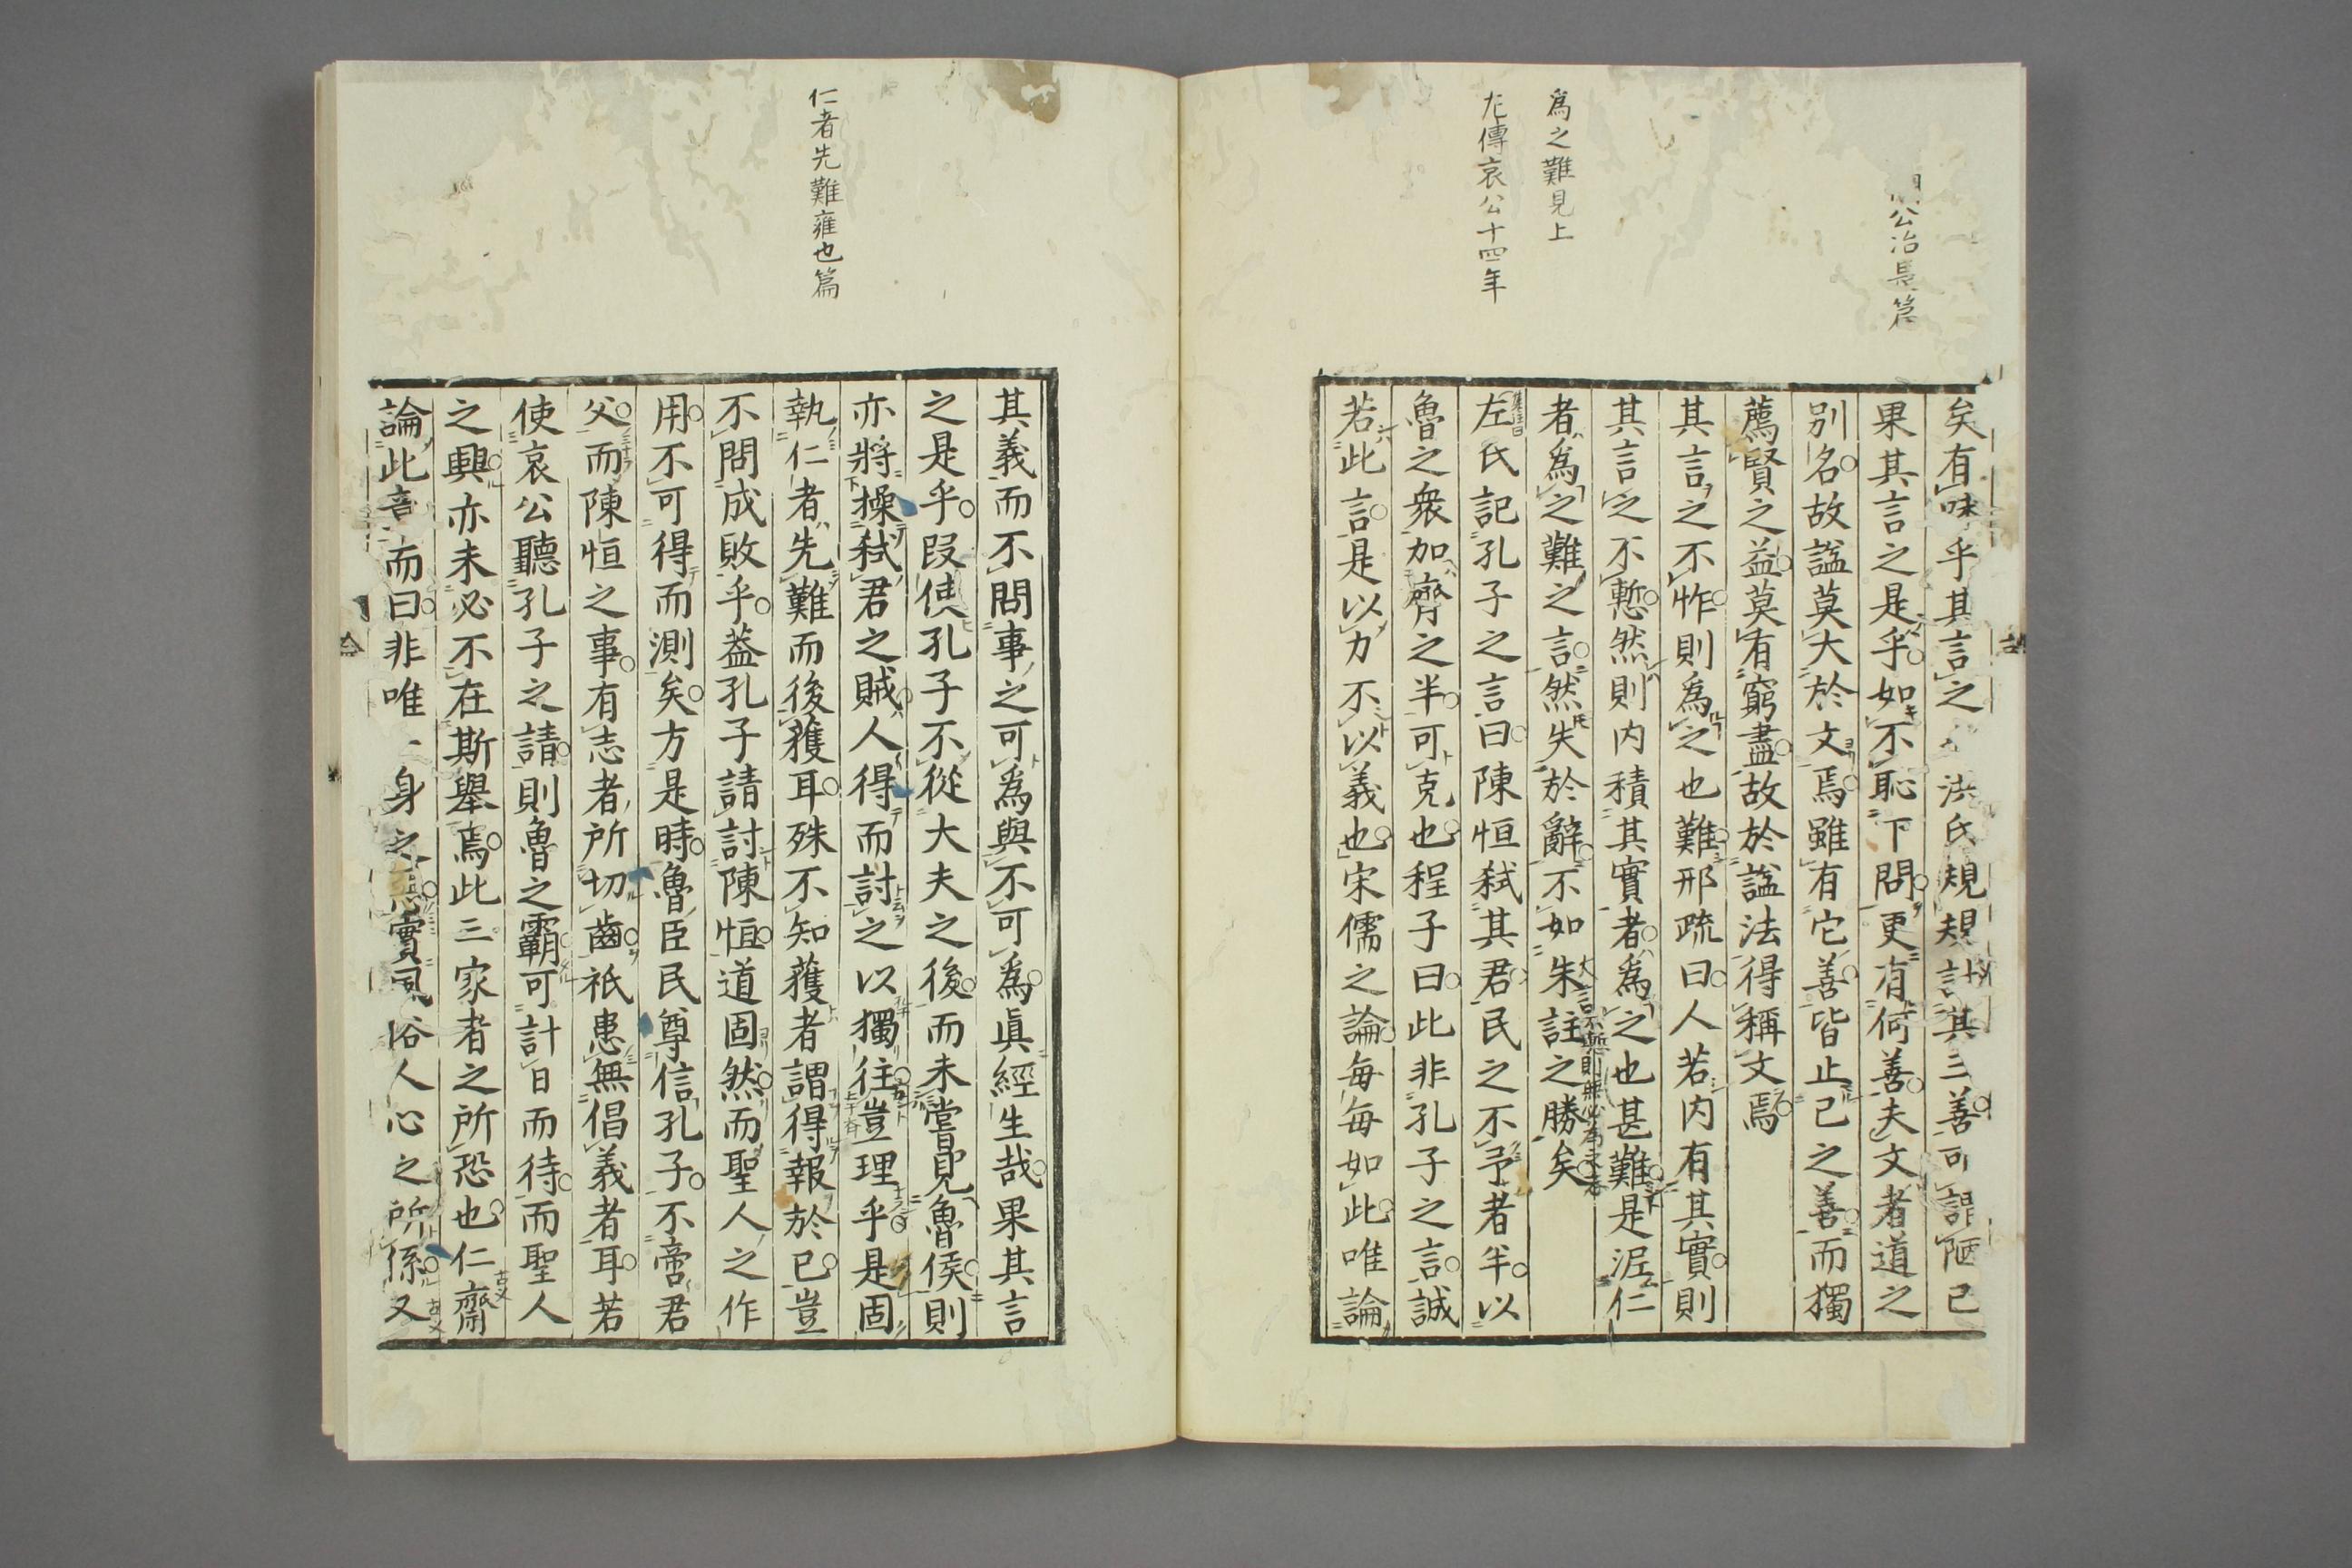 公冶長篇
爲之難見上
左傳哀公十四年
矣有味乎其言之 洪氏規規計其三善可謂陋已
果其言之是乎如不恥下問更有何善夫文者道之
別名故謚莫大於文焉雖有它善皆止己之善而獨
薦賢之益莫有窮盡故於謚法得稱文焉
其言之不怍則爲之也難邢疏曰人若内有其實則
其言之不慙然則内積其實者爲之也甚難是泥仁
者爲之難之言然失於辭不如朱註之勝矣
大言不慙則無必爲之志
集註曰
左氏記孔子之言曰陳恒弑其君民之不予者半以
魯之衆加齊之半可克也程子曰此非孔子之言誠
若此言是以力不以義也宋儒之論每每如此唯論
仁者先難雍也篇
其義而不問事之可爲與不可爲眞經生哉果其言
之是乎叚使孔子不從大夫之後而未嘗見魯侯則
亦將操弑君之賊人得而討之以獨往豈理乎是固
執仁者先難而後獲耳殊不知獲者謂得報於已豈
不問成敗乎葢孔子請討陳恒道固然而聖人之作
用不可得而測矣方是時魯臣民尊信孔子不啻君
父而陳恒之事有志者所切齒祇患無倡義者耳若
使哀公聽孔子之請則魯之霸可計日而待而聖人
之興亦未必不在斯舉焉此三家者之所恐也仁齋
論此章而曰非唯一身之 實風俗人心之所係又